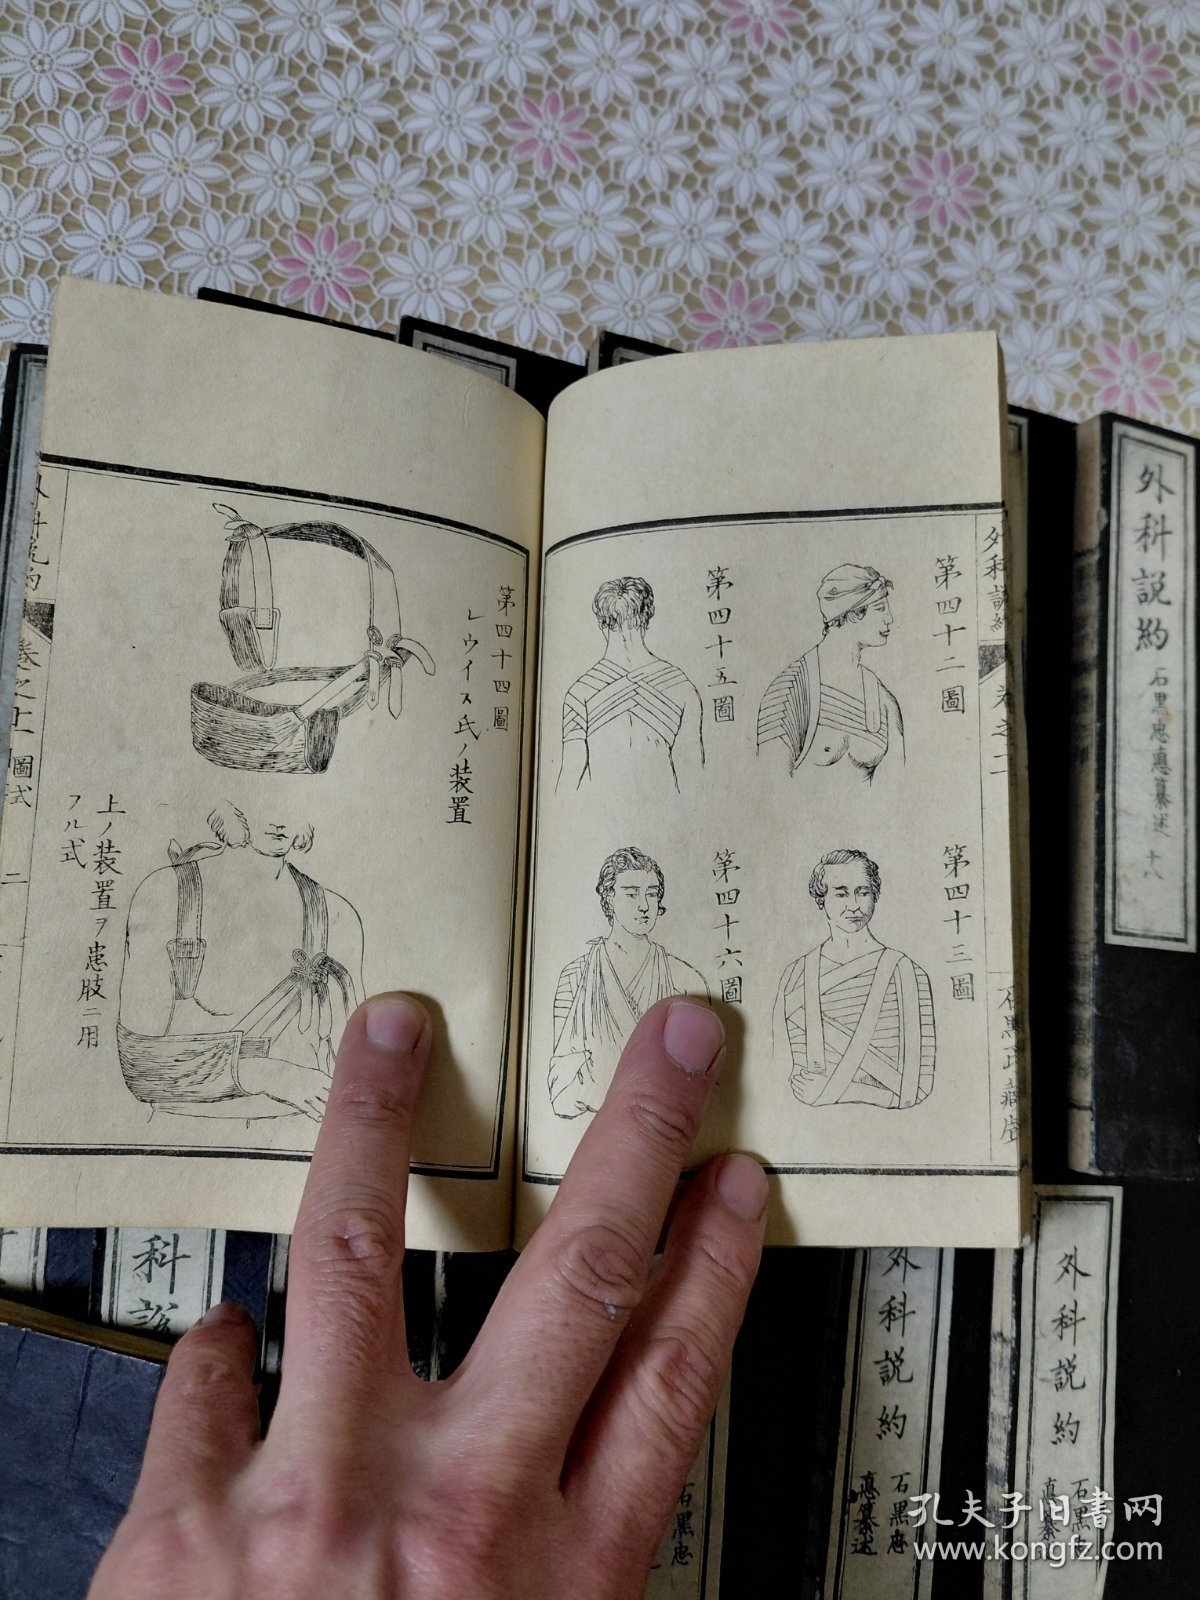 外科説約
卷之十二
石黒氏藏版
第四十二圖
第四十三圖
第四十五圖
第四十六圖
第四十四圖
レウイス氏ノ装置
上ノ装置ヲ患肢ニ用
フル式
圖式
二
外科説約
石黒忠悳纂述
十八
科説
外科説約
石黒忠
悳纂述
外科説約
石黒忠
悳纂述
石黒忠
孔夫子旧書网
www.kongfz.com